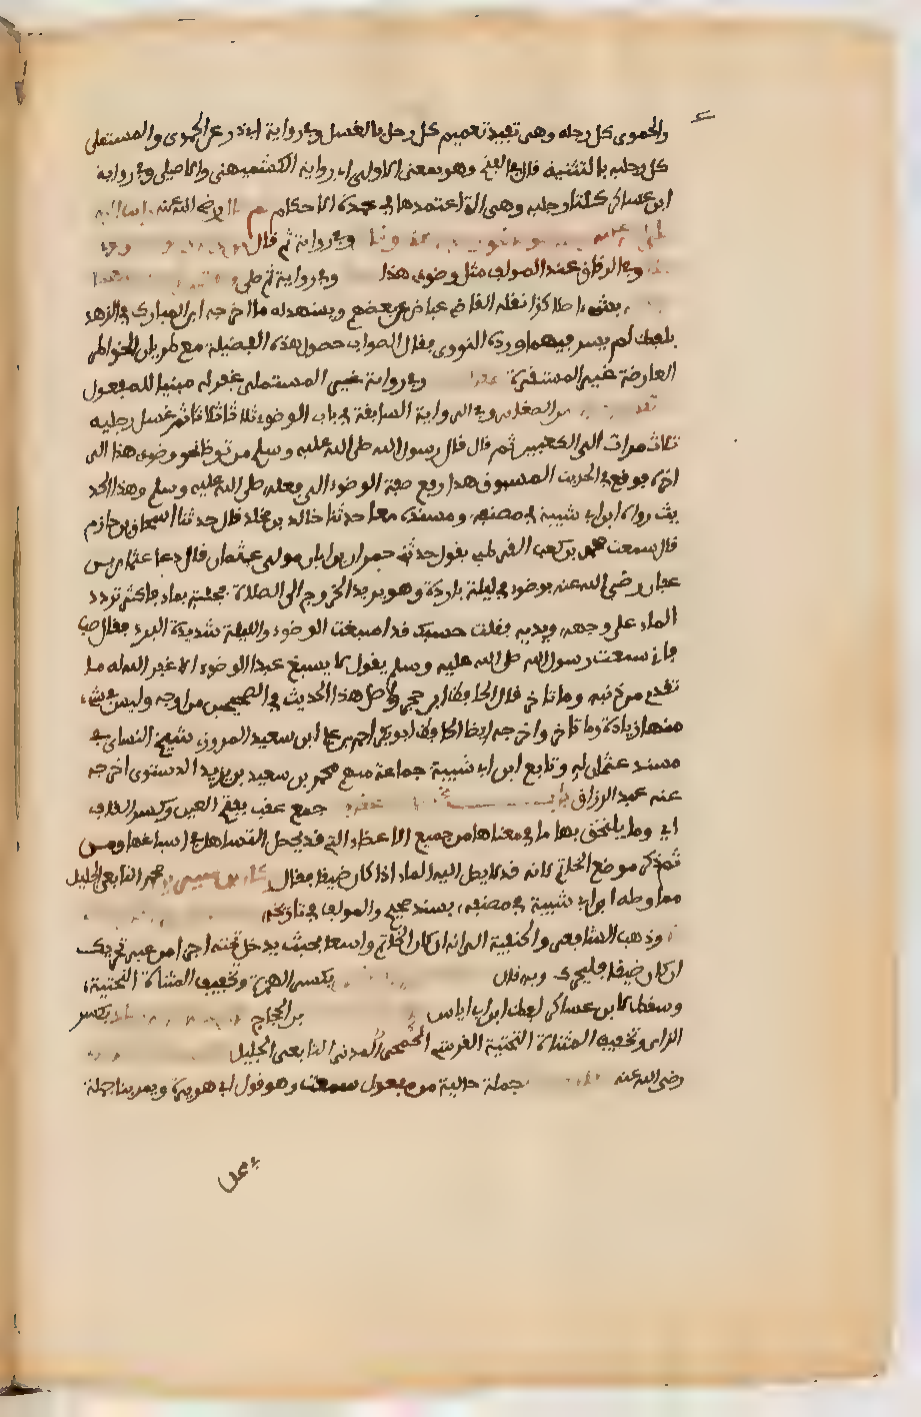 والحموى كل رجله وهى تفيد تعميم كل رجل بالغسل وفى رواية ابى ذر عن الحموى والمستملى
كل رجليه بالتثنية قال فى الفتح وهو بمعنى الاولى اى رواية الكشميهنى والاصيلى وفى رواية
ابن عساكر كلتا رجليه وهى التى اعتمدها فى عمدة الاحكام ثم رضى الله عنه
وفى رواية ثم قال
وفى الرقاق عند المولف مثل وضوى هذا وفى رواية ثم صلى
بشىء اصلا كذا نقله القاضى عياض عن بعضهم ويشهد له ما اخرجه ابن المبارك فى الزهد
بلفظ لم يسر فيهما ورده النووى فقال الصواب حصول هذه الفضيلة مع طريان الخواطر
العارضة غير المستقرة وفى رواية غير المستملى غفر له مبنيا للمفعول
من الصغاير وفى الرواية السابقة فى باب الوضوء ثلاثا ثلاثا ثم غسل رجليه
ثلاث مرات الى الكعبين ثم قال قال رسول الله صلى الله عليه وسلم من توضا نحو وضوى هذا الى
اخره فوقع فى الحديث المسوق هنا رفع صفة الوضوء الى فعله صلى الله عليه وسلم وهذا الحد
يث رواه ابن ابى شيبة فى مصنفه ومسنده معا حدثنا خالد بن مخلد قال حدثنا اسحاق بن حازم
قال سمعت محمد بن كعب القرظى يقول حدثنى حمران بن ابان مولى عثمان قال دعا عثمان بن
عفان رضي الله عنه بوضوء فى ليلة باردة وهو يريد الخروج الى الصلاة فجئته بماء فاكثر تردد
الماء على وجهه ويديه فقلت حسبك قد اسبغت الوضوء والليلة شديدة البرد فقال صب
فانى سمعت رسول الله صلى الله عليه وسلم يقول لا يسبغ عبد الوضوء الا غفر الله له ما
تقدم من ذنبه وما تاخر قال الحافظ ابن حجر واصل هذا الحديث فى الصحيحين من اوجه وليس فى شىء
منها زيادة وما تاخر واخرجه ايضا الحافظ ابو بكر احمد بن على ابن سعيد المروزى شيخ النساى فى
مسند عثمان له وتابع ابن ابى شيبة جماعة منهم محمد بن سعيد بن يزيد التسترى اخرجه
عنه عبد الرزاق باب جمع عقب بفتح العين وكسر القاف
اى وما يلتحق بها مما فى معناها من جميع الاعضاء التى قد يحصل التساهل فى اسباغها ومن
ثم ذكر موضع الخاتم لانه قد لا يصل اليه الماء اذا كان ضيقا فقال وكان ابن سيرين محمد التابعى الجليل
مما وصله ابن ابى شيبة فى مصنفه بسند صحيح والمولف فى تاريخه
وذهب الشافعى والحنفية الى انه ان كان الخاتم واسعا بحيث يدخل تحته اجزا من غير تحريك
ان كان ضيقا فليحرك وبه قال بكسر الهمزة وتخفيف المثناة التحتية
وسقط لابن عساكر لفظ ابن ابى اياس بن الحجاج بكسر
الزاى وتخفيف المثناة التحتية القرشى الجمحى المدنى التابعى الجليل
رضى الله عنه جملة حالية من مفعول سمعت وهو قول ابى هريرة ويمر بنا جملة
فى محل